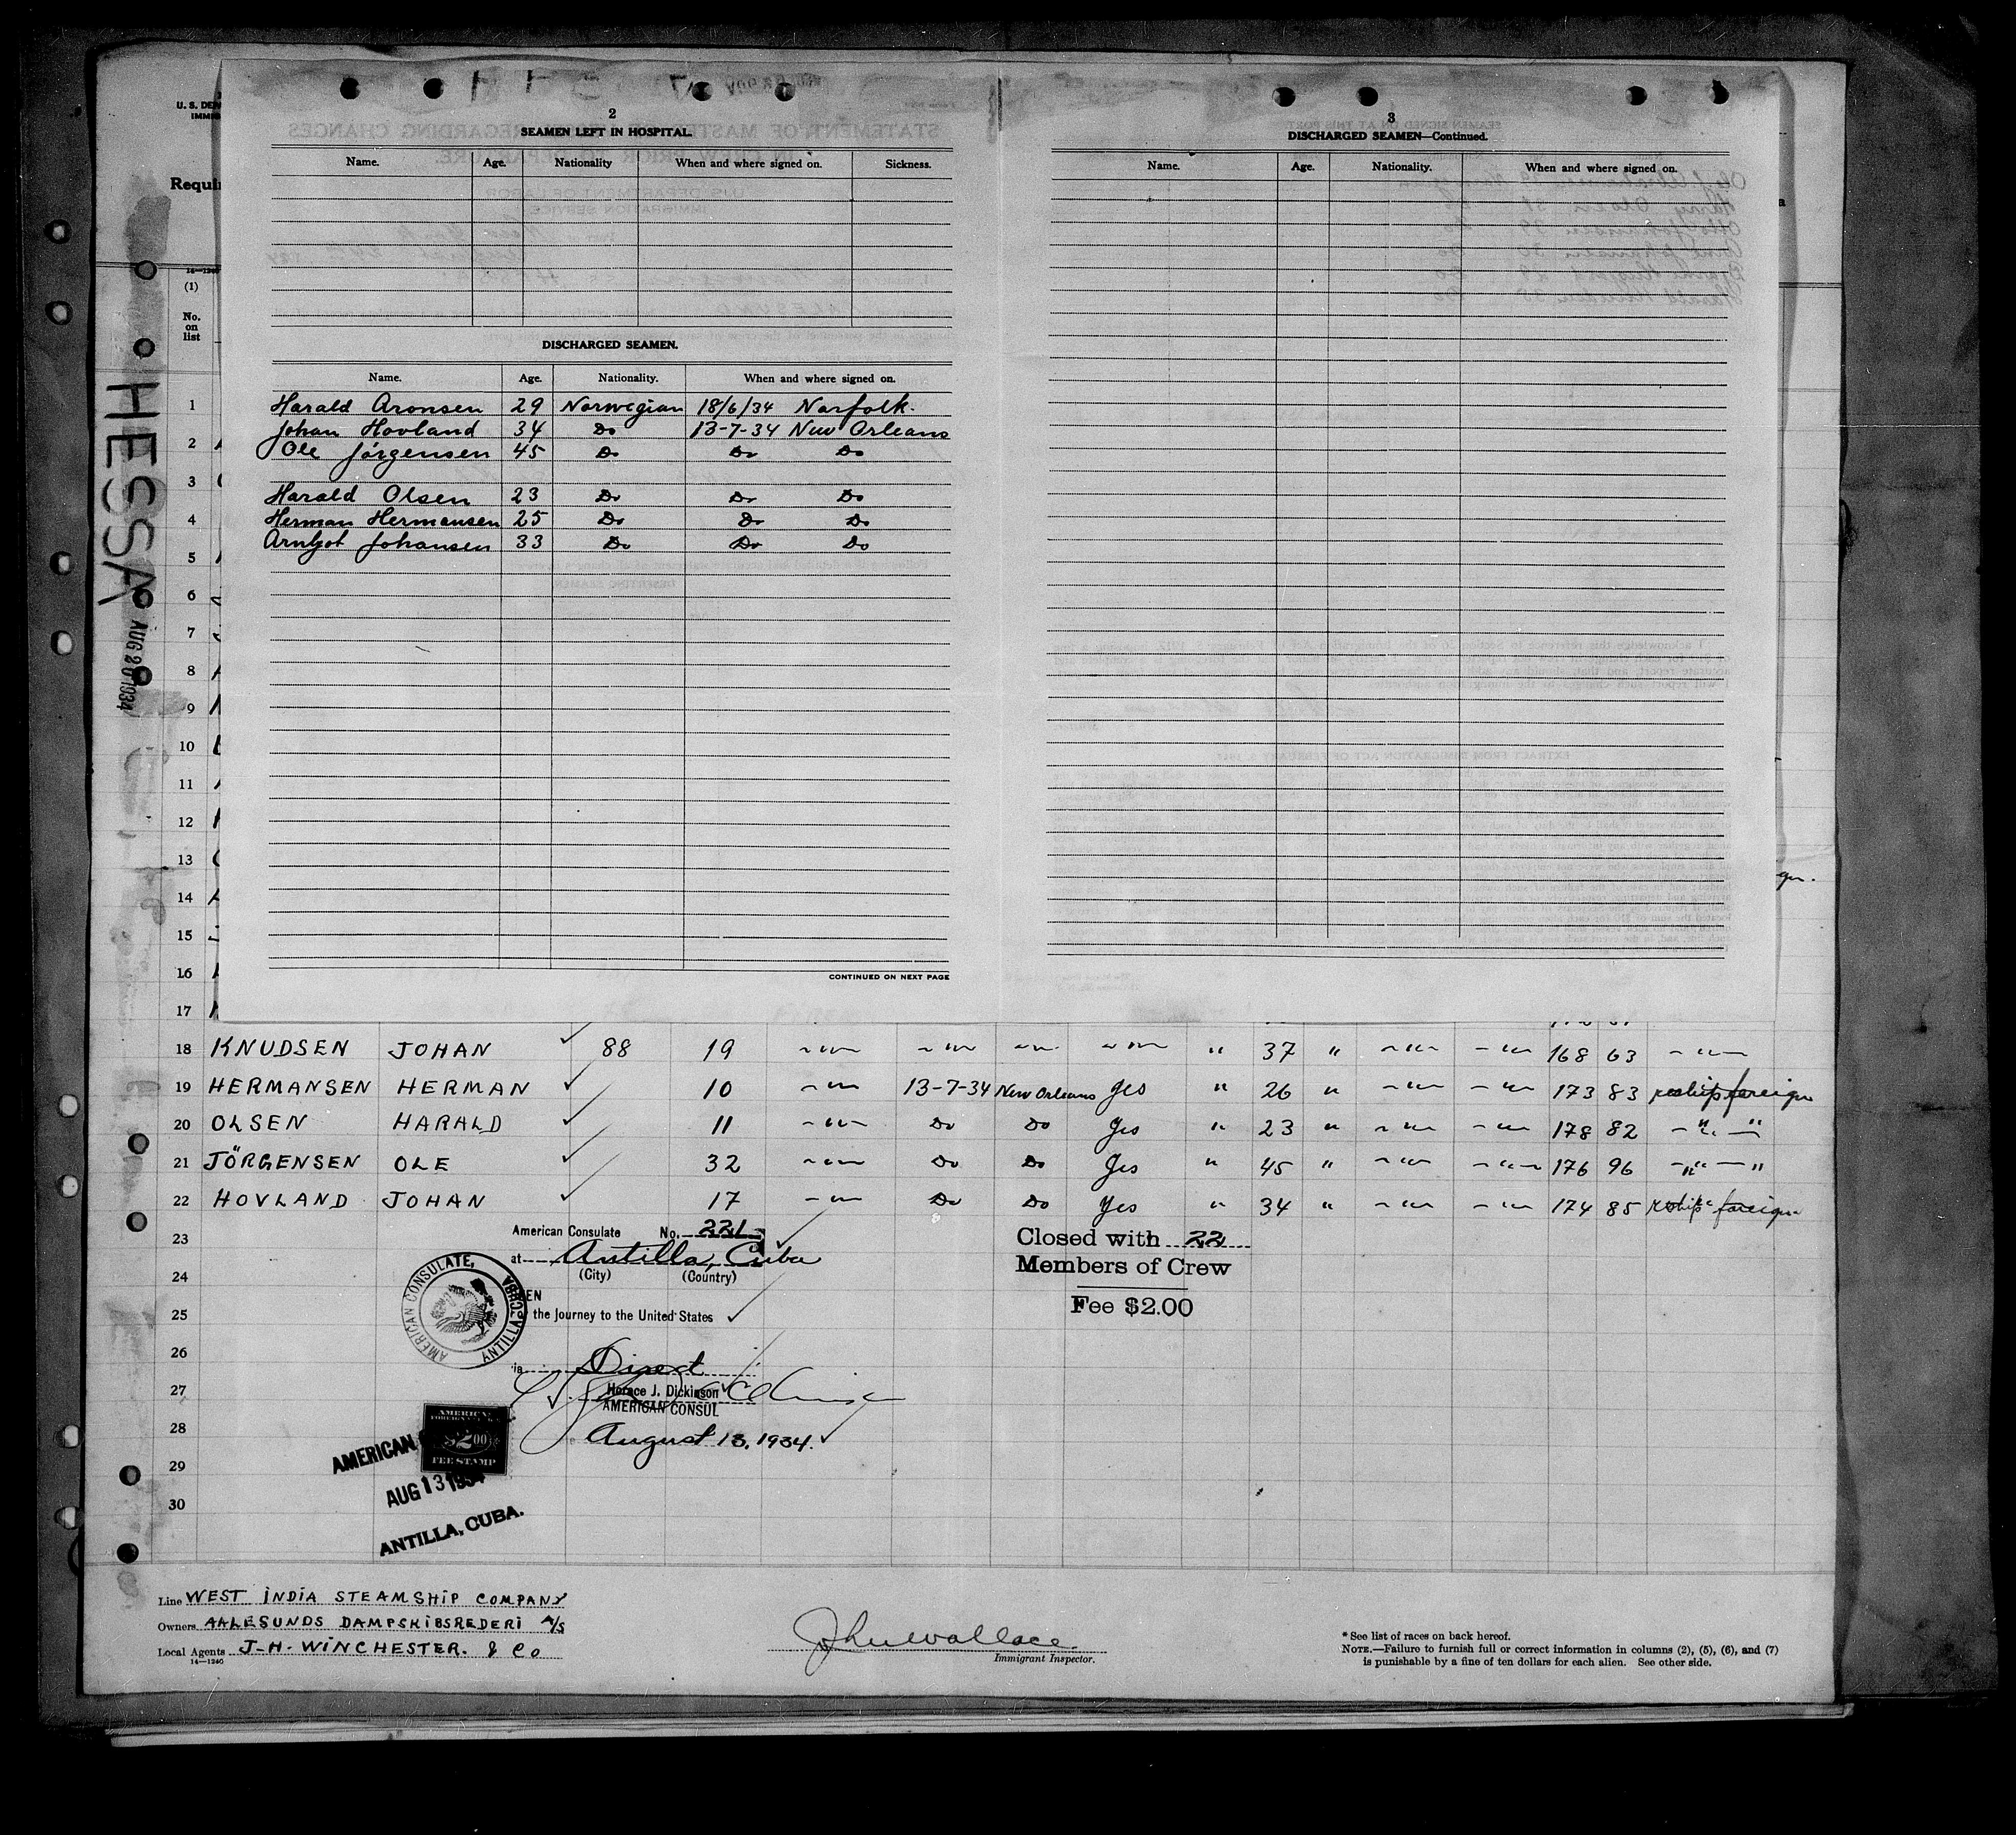 2
SEAMEN LEFT IN HOSPITAL.
Name. Age. Nationality When and where signed on. Sickness.
DISCHARGED SEAMEN.
Name. Age. Nationality. When and where signed on.
Harald Aronsen 29 Norwegian 18/6/34 Norfolk.
Johan Hovland 34 Do 13-7-34 New Orleans
Ole Jörgensen 45 Do Do Do
Harald Olsen 23 Do Do Do
Herman Hermansen 25 Do Do Do
Arnljot Johansen 33 Do Do Do
CONTINUED ON NEXT PAGE
3
DISCHARGED SEAMEN—Continued.
Name. Age. Nationality. When and where signed on.
U. S. DE
IMMI
Requi
14—1240
(1)
No.
on
list
HESSA
AUG 20 1934
1
2
3
4
5
6
7
8
9
10
11
12
13
14
15
16
17
18 KNUDSEN JOHAN 88 19 -"- -"- -"- -"- " 37 " -"- -"- 168 63 -"-
19 HERMANSEN HERMAN 10 -"- 13-7-34 New Orleans yes " 26 " -"- -"- 173 83 reship foreign
20 OLSEN HARALD 11 -"- Do Do yes " 23 " -"- -"- 178 82 -"- "
21 JÖRGENSEN OLE 32 -"- Do Do yes " 45 " -"- -"- 176 96 -"- "
22 HOVLAND JOHAN 17 -"- Do Do yes " 34 " -"- -"- 174 85 reship foreign
23
24
25
26
27
28
29
30
American Consulate No. 221
at Antilla, Cuba
(City) (Country)
EN
the Journey to the United States
ia Direct
Horace J. Dickinson
AMERICAN CONSUL
August 13, 1934.
AMERICAN CONSULATE, ANTILLA, CUBA
AMERICAN
$2.00
FEE STAMP
AMERICAN
AUG 13 1934
ANTILLA, CUBA.
Closed with 22
Members of Crew
Fee $2.00
Line WEST INDIA STEAMSHIP COMPANY
Owners AALESUNDS DAMPSKIBSREDERI A/S
Local Agents J-H-WINCHESTER. & Co
14—1240
John Wallace
Immigrant Inspector.
* See list of races on back hereof.
NOTE.—Failure to furnish full or correct information in columns (2), (5), (6), and (7)
is punishable by a fine of ten dollars for each alien. See other side.